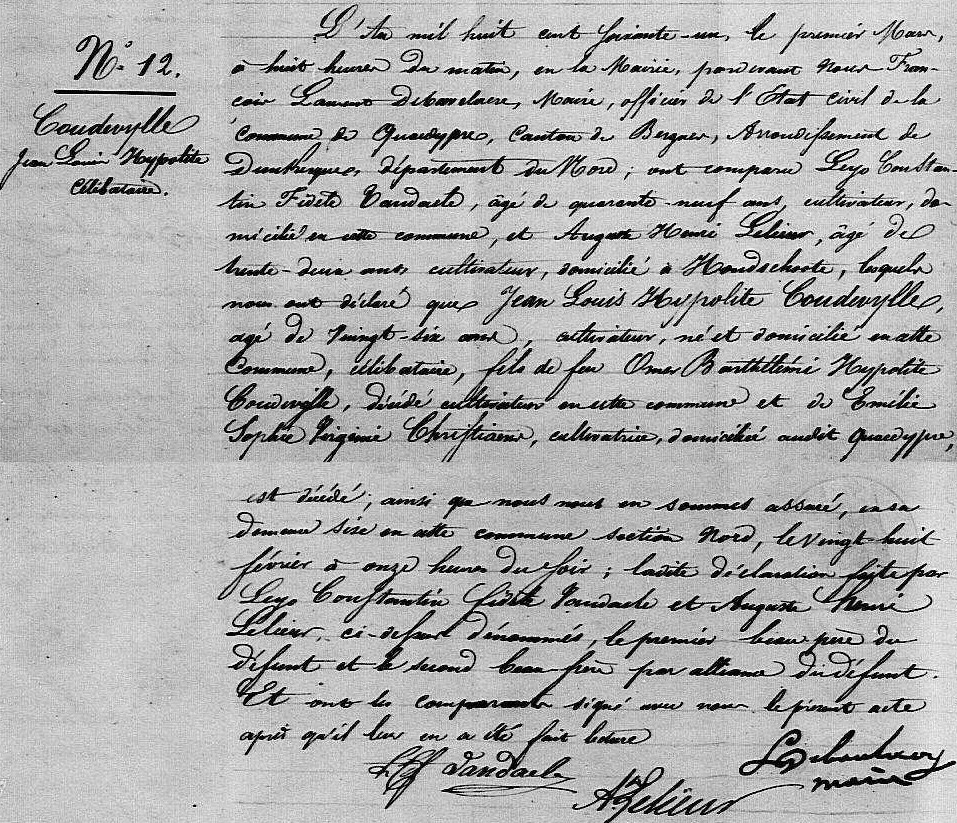 N.° 12.
Coudevylle
Jean Louis Hypolite
célibataire.
L'An mil huit cent soixante-un, le premier Mars,
à huit heures du matin, en la Mairie, pardevant Nous Fran-
çois Laurent Debavelaere, Maire, officier de l'Etat civil de la
commune de Quaedypre, Canton de Bergues, Arrondissement de
Dunkerque, département du Nord; ont comparu Constan-
tin Fidèle Vandaele, âgé de quarante-neuf ans, cultivateur, do-
micilié en cette commune, et Auguste Henri Lelieur, âgé de
trente-deux ans, cultivateur, domicilié à Hondschoote, lesquels
nous ont déclaré que Jean Louis Hypolite Coudevylle,
agé de Vingt-six ans, cultivateur, né et domicilié en cette
Commune, célibataire, fils de feu Omer Barthélémi Hypolite
Coudevylle, décédé cultivateur en cette commune et de Emélie
Sophie Virginie Christiaens, cultivatrice, domiciliée audit Quaedypre,
est décédé; ainsi que nous nous en sommes assuré, en sa
demeure sise en cette commune section Nord, le vingt huit
février à onze heures du soir; ladite déclaration faite par
Constantin fidèle Vandaele et Auguste henri
Lelieur, ci-dessus dénommés, le premier beau père du
défunt et le second beau-frère par alliance du défunt.
Et ont les comparants signé avec nous le présent acte
après qu'il leur en a été fait lecture
Vandaele
A. Lelieur
maire